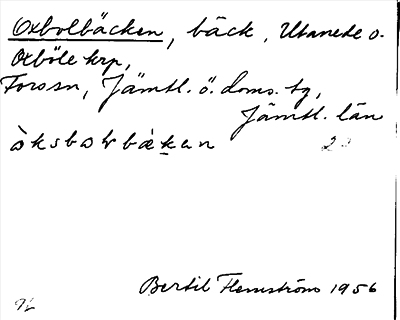 Oxbolbäcken, bäck, Utanede o.
Oxböle krp,
Forssn, Jämtl. ö. doms. tg,
Jämtl. län
Bertil Flemström 1956